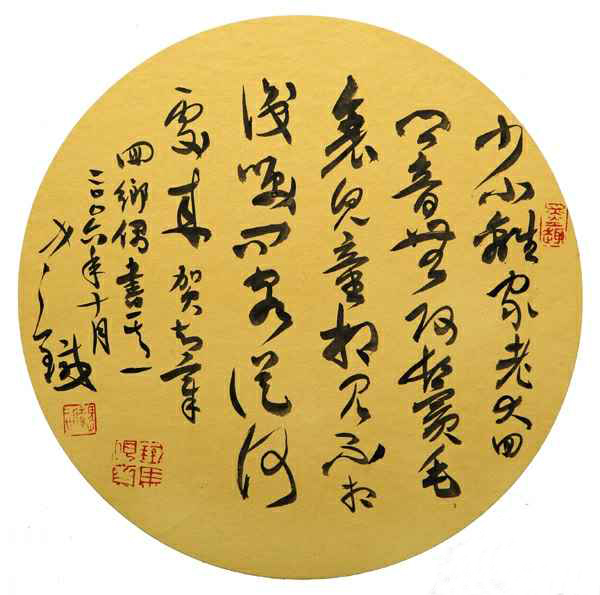 少小離家老大回
鄉音無改鬢毛
衰兒童相見不相
識咲問客從何
處來 賀知章
回鄉偶書其一
二〇〇六年十月